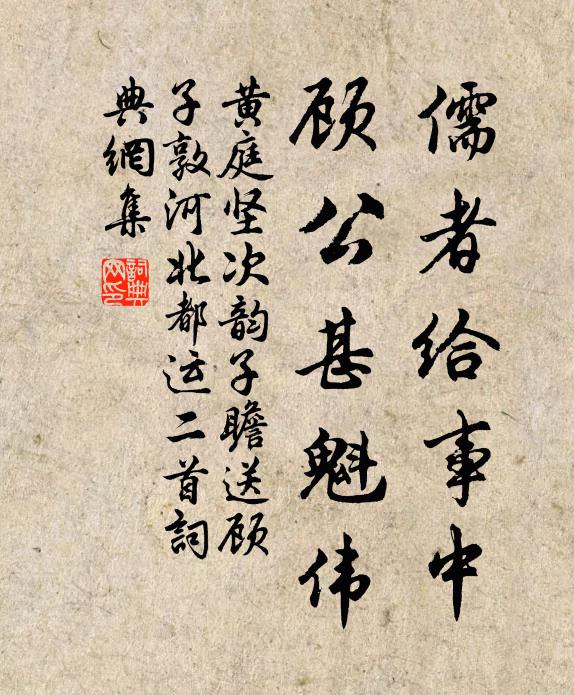 儒者给事中
顾公甚魁伟
黄庭坚次韵子瞻送顾
子敦河北都运二首詞
典網集
詞典
网印